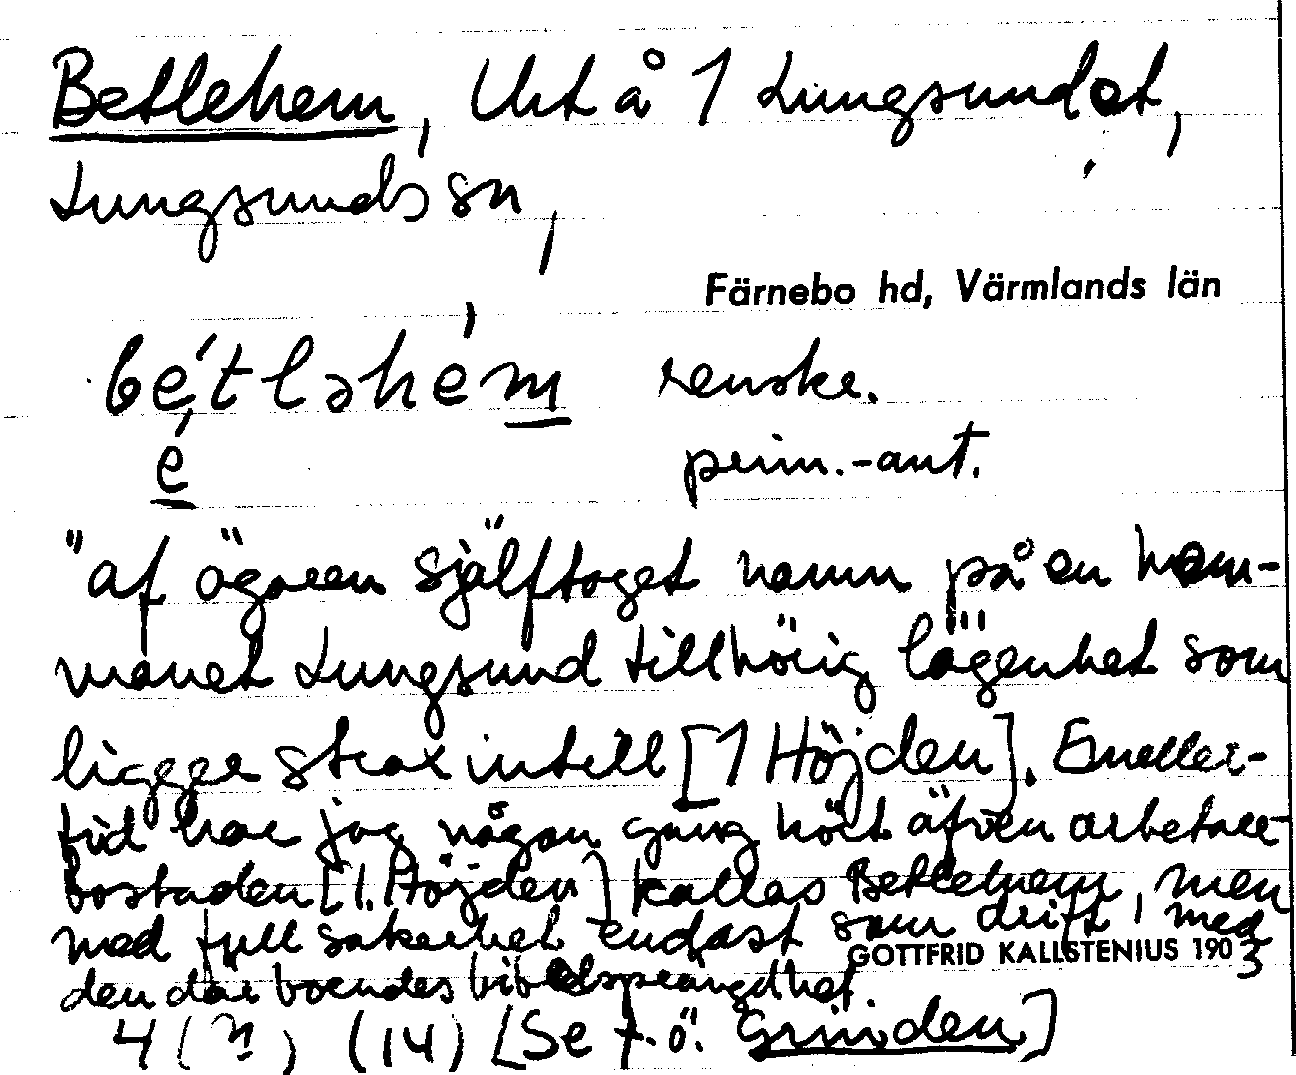 Betlehem, Uht å 1 Lungsundet,
Lungsunds sn,
Färnebo hd, Värmlands län
bé̩tləhém renske.
é prim.-ant.
"af ägaren själftoget namn på en hem-
manet Lungsund tillhörig lägenhet som
ligger strax intill [1 Höjden]. Emeller-
tid har jag någon gång hört äfven arbetare-
bostaden [1. Höjden] kallas Betlehem, men
med full säkerhet endast som drift, med
GOTTFRID KALLSTENIUS 1903
den där boendes bibelsprängdhet.
4 (n) (14) [Se f. ö. Grinden]